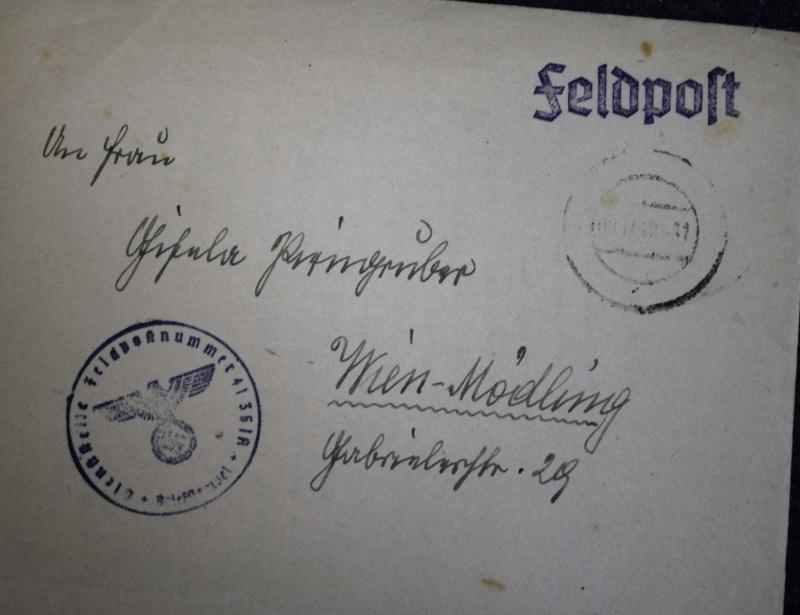 Feldpost
An Frau
Gisela Piringruber
Wien-Mödling
Gabrielerstr. 29
Dienststelle Feldpostnummer 41361A